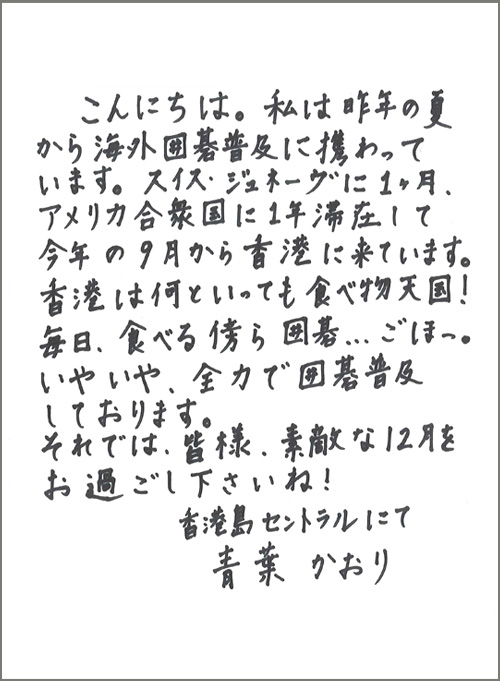 こんにちは。私は昨年の夏
から海外囲碁普及に携わって
います。スイス・ジュネーヴに1ヶ月、
アメリカ合衆国に1年滞在して
今年の9月から香港に来ています。
香港は何といっても食べ物天国!
毎日、食べる傍ら囲碁...ごほっ。
いやいや、全力で囲碁普及
しております。
それでは、皆様、素敵な12月を
お過ごし下さいね!
香港島セントラルにて
青葉かおり